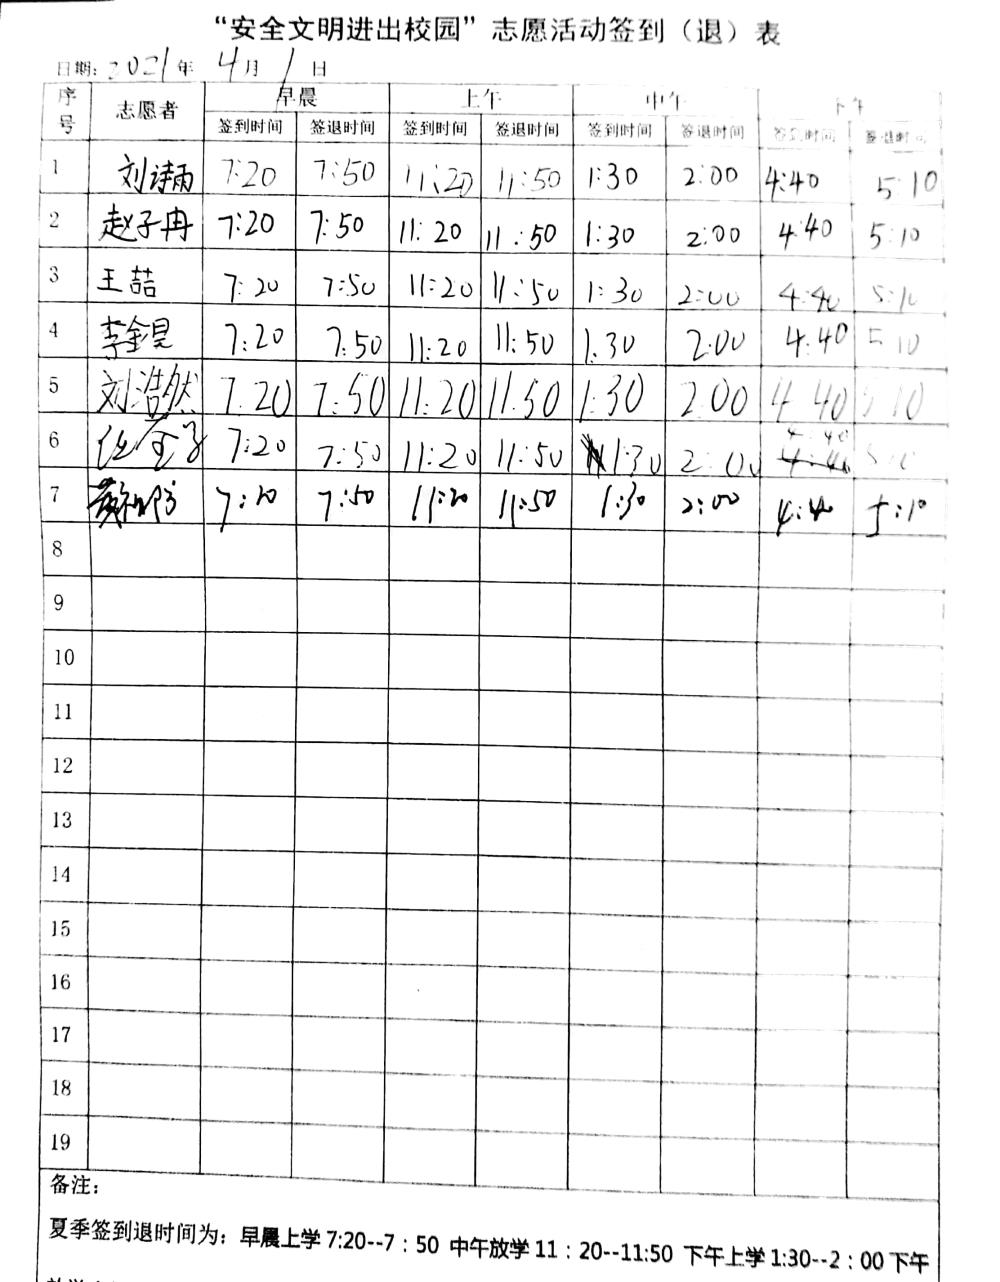 “安全文明进出校园”志愿活动签到（退）表
日期: 2021年 4月 1日
序号 志愿者 早晨 上午 中午 下午
签到时间 签退时间 签到时间 签退时间 签到时间 签退时间 签到时间 签退时间
1 刘诗雨 7:20 7:50 11:20 11:50 1:30 2:00 4:40 5:10
2 赵子冉 7:20 7:50 11:20 11:50 1:30 2:00 4:40 5:10
3 王喆 7:20 7:50 11:20 11:50 1:30 2:00 4:40 5:10
4 李金昊 7:20 7:50 11:20 11:50 1:30 2:00 4:40 5 10
5 刘浩然 7.20 7:50 11:20 11:50 1:30 2:00 4 40 5 10
6 7:20 7:50 11:20 11:50 1:30 2:00 4:40 5:10
7 7:20 7:50 11:20 11:50 1:30 2:00 4:40 5:10
8
9
10
11
12
13
14
15
16
17
18
19
备注:
夏季签到退时间为: 早晨上学 7:20--7：50 中午放学 11：20--11:50 下午上学 1:30--2：00 下午